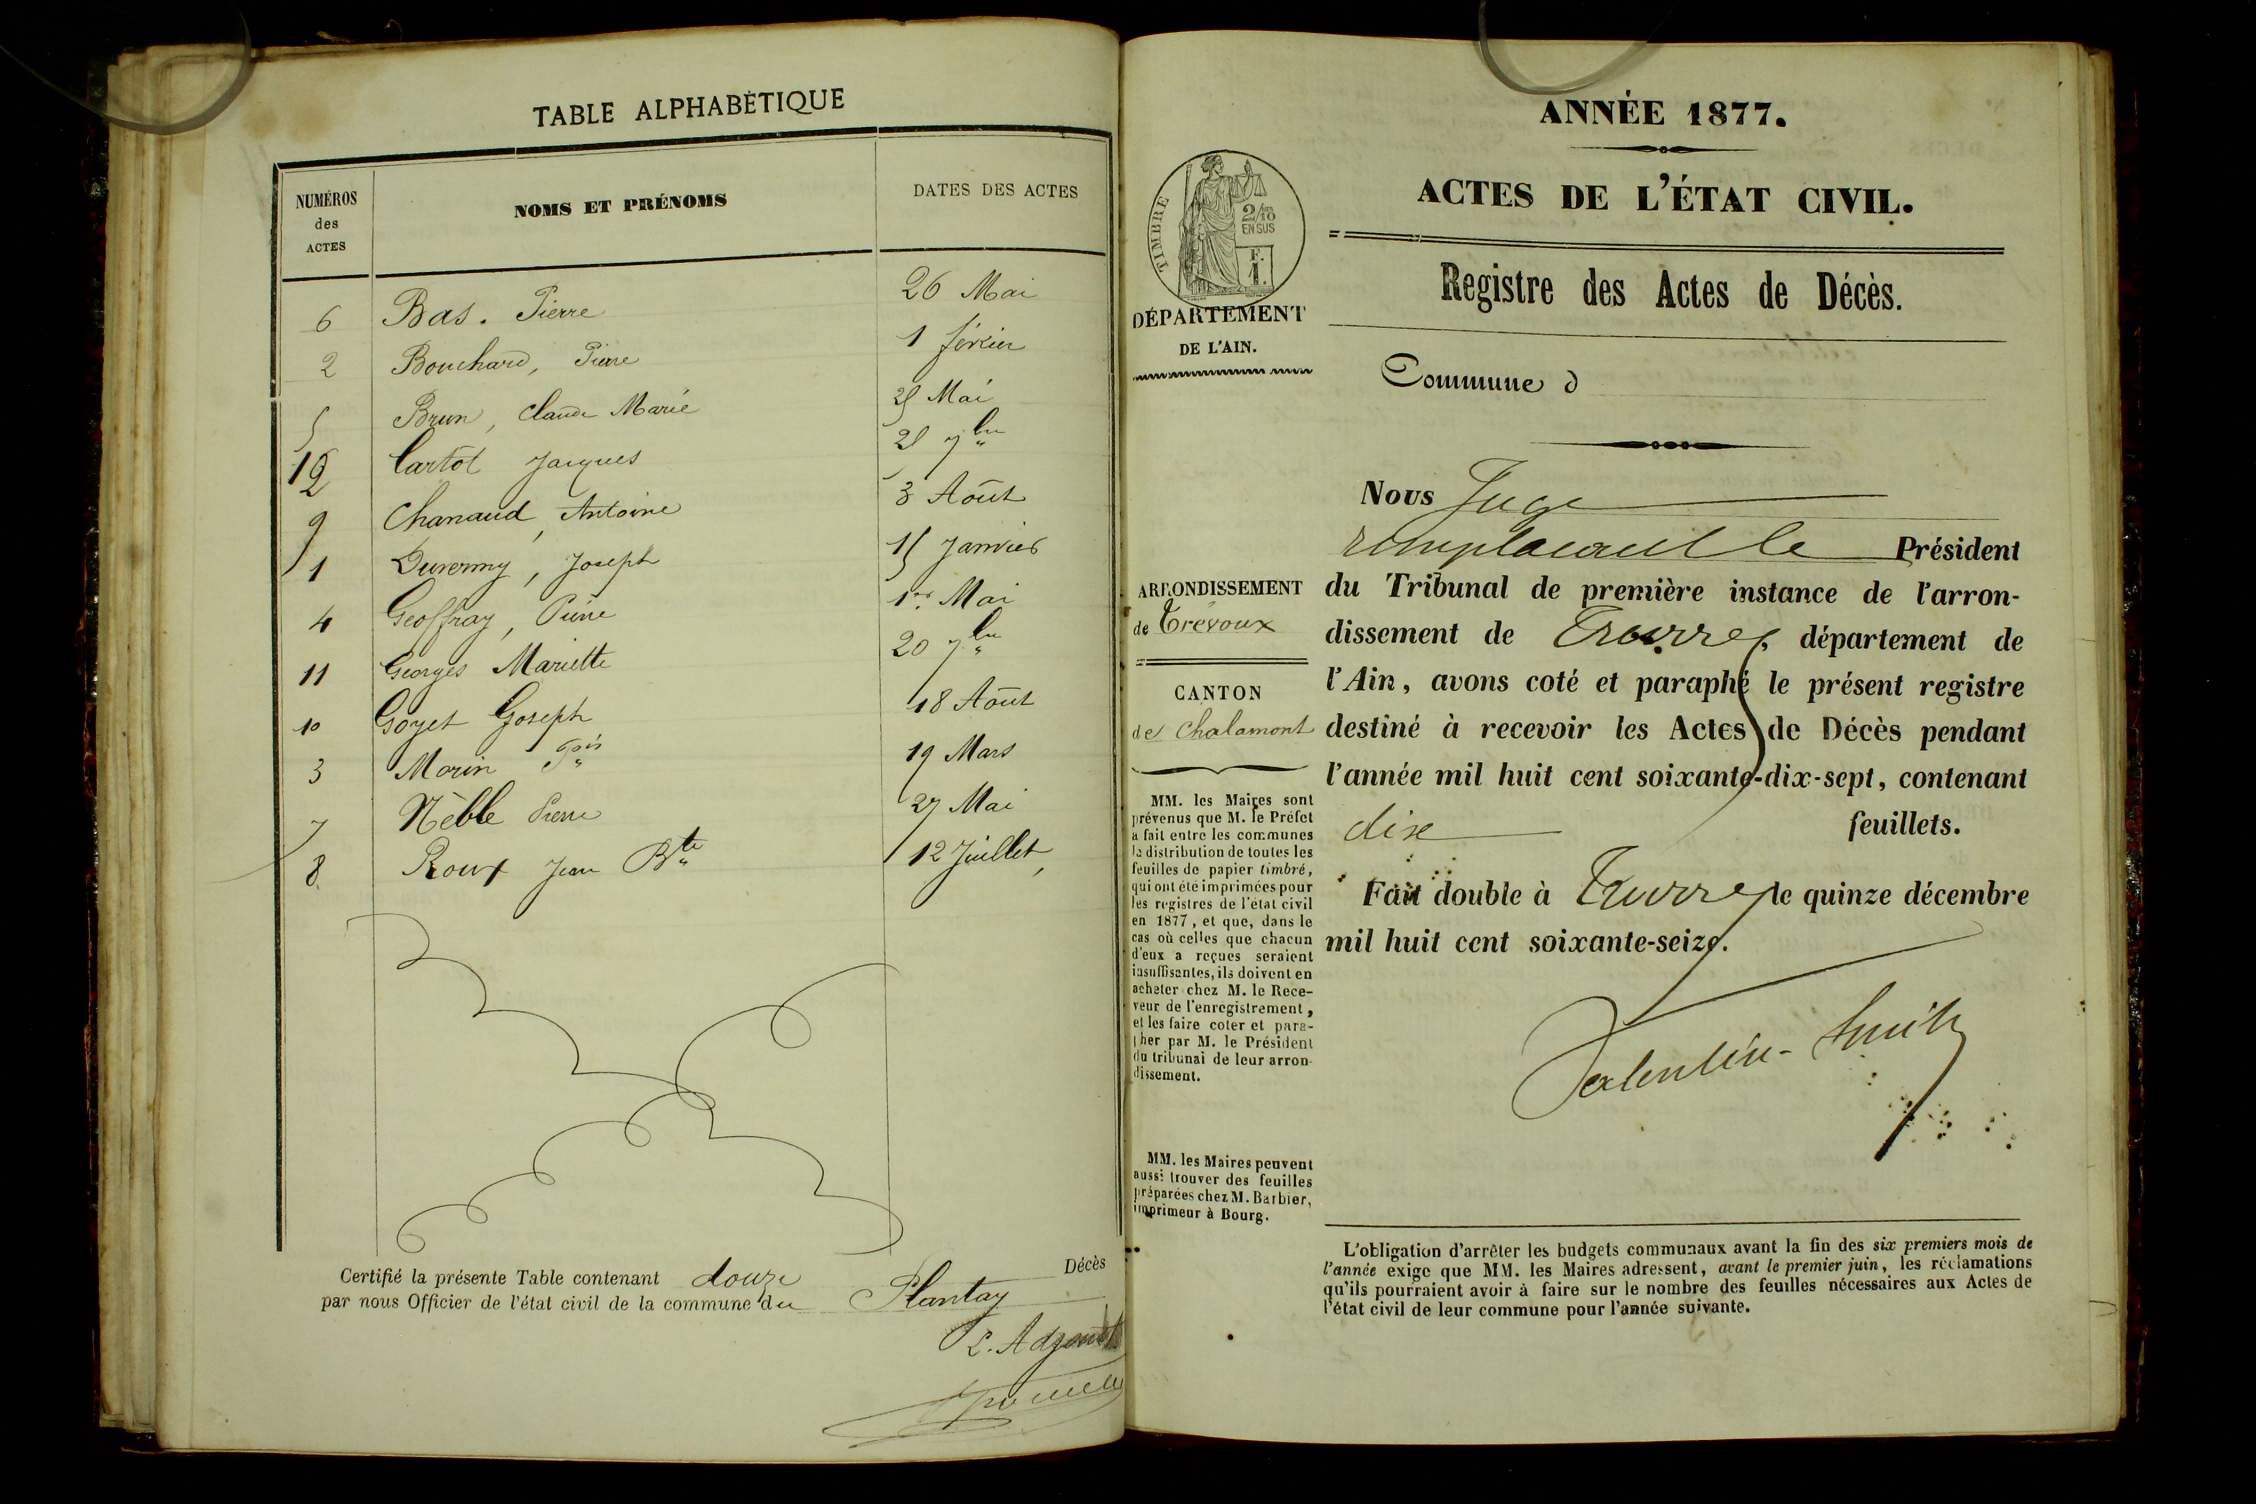 TABLE ALPHABÉTIQUE
NUMÉROS des ACTES
NOMS ET PRÉNOMS
DATES DES ACTES
6 Bas. Pierre 26 Mai
2 Bouchard, Pierre 1 février
5 Brun, Claude Marie 25 Mai
12 Cartot Jacques 7bre
9 Chanaud, Antoine 3 Août
1 Duvernay, Joseph 15 Janvier
4 Geoffray, Pierre 1er Mai
11 Georges Mariette 20 7bre
10 Goyet Joseph 18 Août
3 Morin Fçois 19 Mars
7 Nèble Pierre 27 Mai
8 Roux Jean Bte 12 Juillet,
Certifié la présente Table contenant douze Décès
par nous Officier de l'état civil de la commune du Plantay
L. Adjoint
ANNÉE 1877.
ACTES DE L'ÉTAT CIVIL.
Registre des Actes de Décès.
TIMBRE
2/10 EN SUS
F. 1.
DÉPARTEMENT
DE L'AIN.
Commune d
ARRONDISSEMENT
de Trévoux
CANTON
de Chalamont
MM. les Maires sont
prévenus que M. le Préfet
a fait entre les communes
la distribution de toutes les
feuilles de papier timbré,
qui ont été imprimées pour
les registres de l'état civil
en 1877, et que, dans le
cas où celles que chacun
d'eux a reçues seraient
insuffisantes, ils doivent en
acheter chez M. le Rece-
veur de l'enregistrement,
et les faire coter et para-
pher par M. le Président
du tribunal de leur arron-
dissement.
MM. les Maires peuvent
aussi trouver des feuilles
préparées chez M. Barbier,
imprimeur à Bourg.
Nous Juge
remplaçant le Président
du Tribunal de première instance de l'arron-
dissement de Trévoux, département de
l'Ain, avons coté et paraphé le présent registre
destiné à recevoir les Actes de Décès pendant
l'année mil huit cent soixante-dix-sept, contenant
dix feuillets.
Fait double à Trévoux le quinze décembre
mil huit cent soixante-seize.
Valentin-Smith
L'obligation d'arrêter les budgets communaux avant la fin des six premiers mois de
l'année exige que MM. les Maires adressent, avant le premier juin, les réclamations
qu'ils pourraient avoir à faire sur le nombre des feuilles nécessaires aux Actes de
l'état civil de leur commune pour l'année suivante.